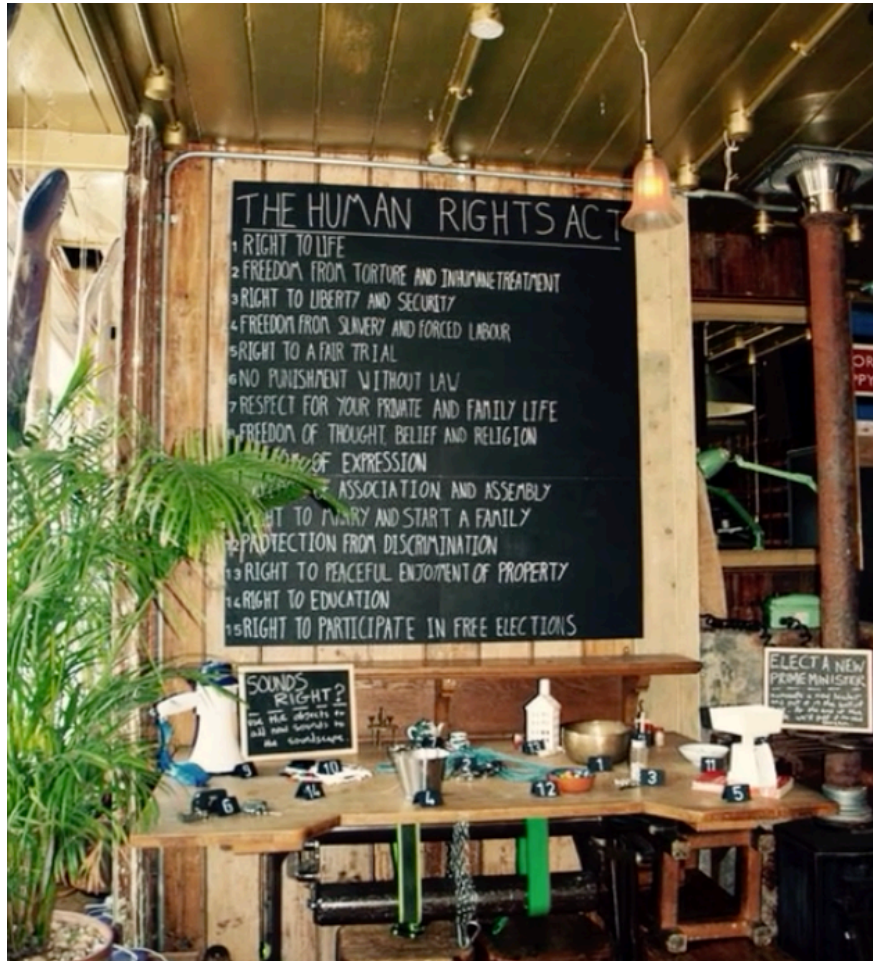 THE HUMAN RIGHTS ACT
1 RIGHT TO LIFE
2 FREEDOM FROM TORTURE AND INHUMANE TREATMENT
3 RIGHT TO LIBERTY AND SECURITY
4 FREEDOM FROM SLAVERY AND FORCED LABOUR
5 RIGHT TO A FAIR TRIAL
6 NO PUNISHMENT WITHOUT LAW
7 RESPECT FOR YOUR PRIVATE AND FAMILY LIFE
FREEDOM OF THOUGHT, BELIEF AND RELIGION
OF EXPRESSION
ASSOCIATION AND ASSEMBLY
TO MARRY AND START A FAMILY
12 PROTECTION FROM DISCRIMINATION
13 RIGHT TO PEACEFUL ENJOYMENT OF PROPERTY
14 RIGHT TO EDUCATION
15 RIGHT TO PARTICIPATE IN FREE ELECTIONS
OR
PPY
SOUNDS
RIGHT?
use the objects to
add new sounds to
the soundscape.
ELECT A NEW
PRIME MINISTER
9
10
2
1
3
11
6
14
4
12
5